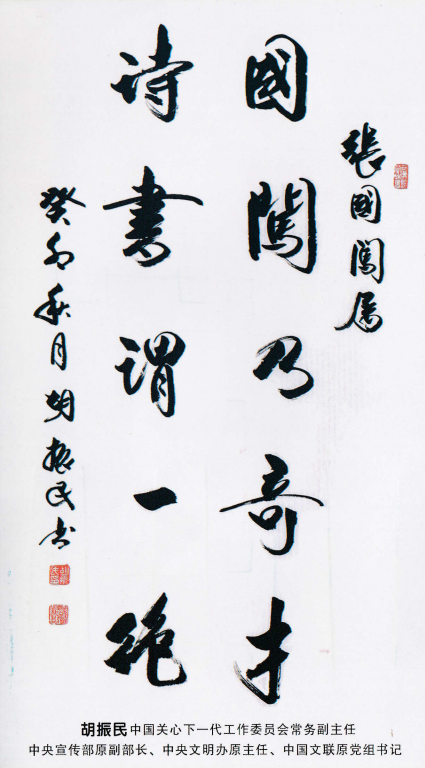 張國闖属
國闖乃奇才
诗書谓一绝
癸卯秋月胡振民书
胡振民中国关心下一代工作委员会常务副主任
中央宣传部原副部长、中央文明办原主任、中国文联原党组书记